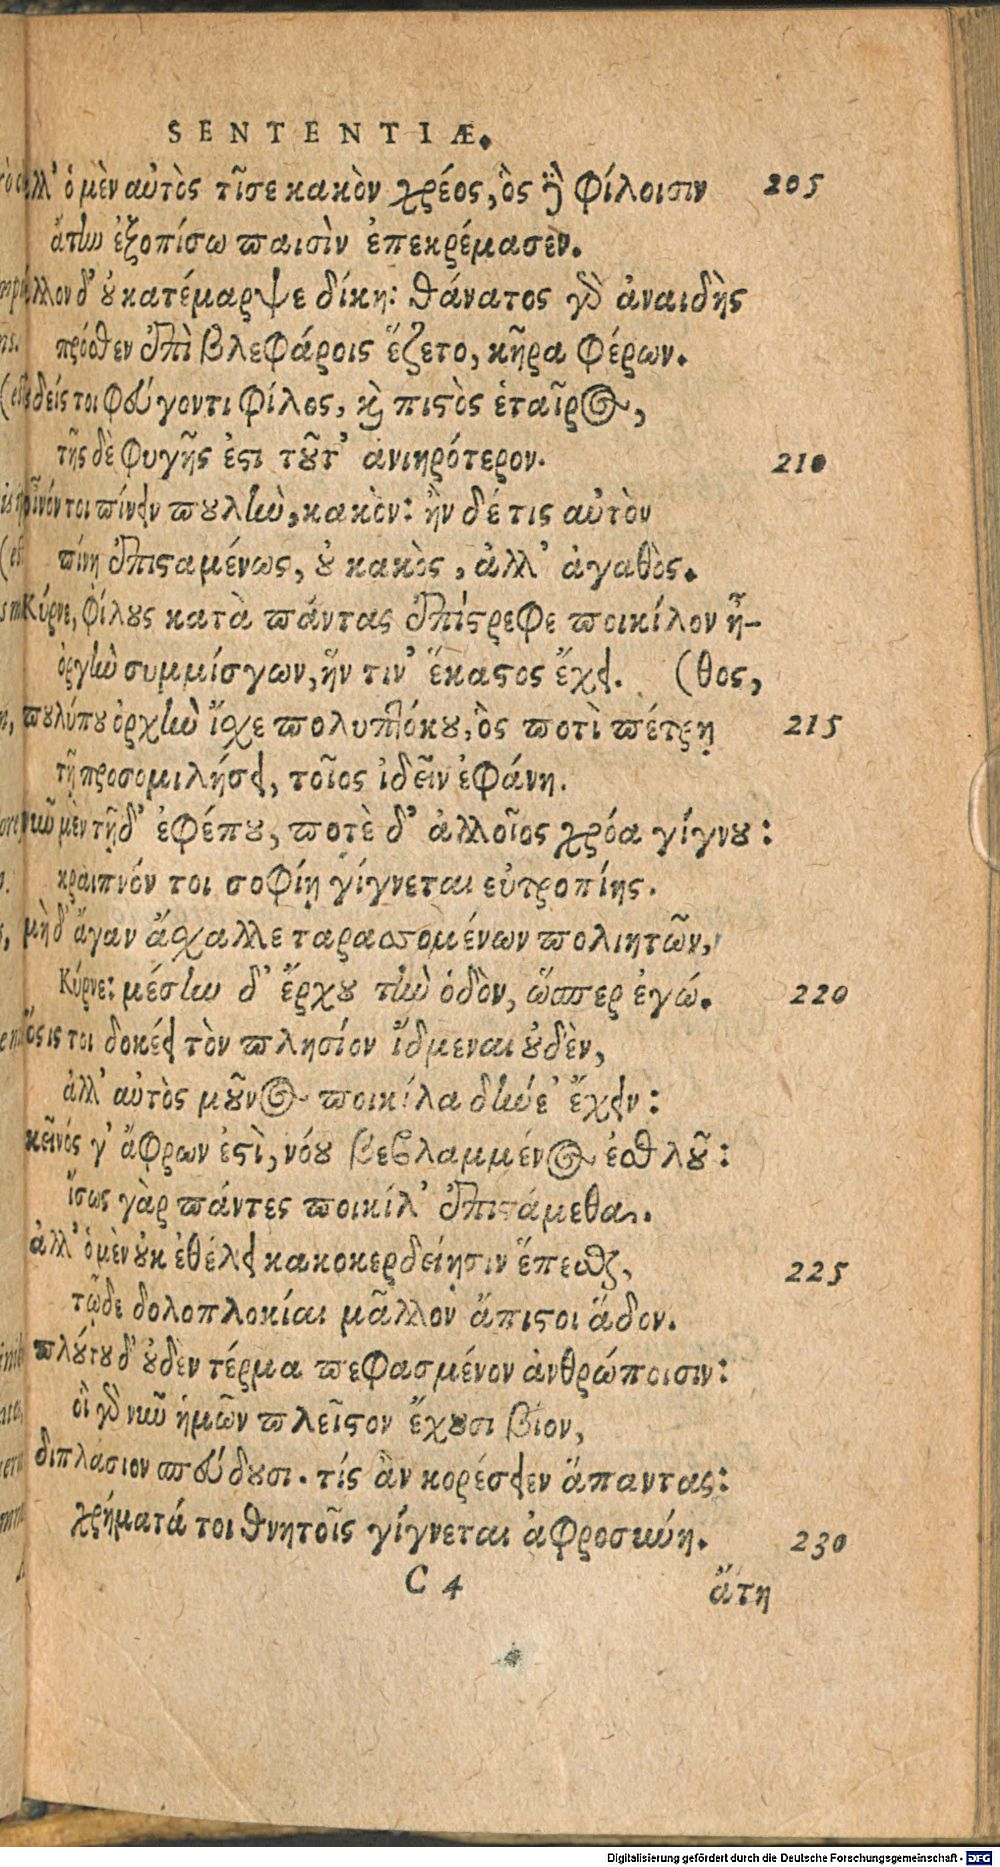 SENTENTIÆ.
ἀλλ' ὁ μὲν αὐτὸς τῖσε κακὸν χρέος, ὃς ἢ φίλοισιν 205
ἄτην ἐξοπίσω παισὶν ἐπεκρέμασεν.
ἄλλον δ' οὐ κατέμαρψε δίκη: θάνατος γὰρ ἀναιδὴς
πρόσθεν ἐπὶ βλεφάροις ἕζετο, κῆρα φέρων.
οὐδείς τοι φεύγοντι φίλος, καὶ πιστὸς ἑταῖρος,
τῆς δὲ φυγῆς ἐστι τοῦτ' ἀνιηρότερον. 210
οἶνόν τοι πίνειν πουλὺν, κακόν: ἢν δέ τις αὐτὸν
πίνῃ ἐπισταμένως, οὐ κακὸς, ἀλλ' ἀγαθὸς.
Κύρνε, φίλους κατὰ πάντας ἐπίστρεφε ποικίλον ἦ-
ὀργὴν συμμίσγων, ἥν τιν' ἕκαστος ἔχει. (θος,
πουλύπου ὀρχὴν ἴσχε πολυπλόκου, ὃς ποτὶ πέτρῃ 215
τῇ προσομιλήσει, τοῖος ἰδεῖν ἐφάνη.
νῦν μὲν τῇδ' ἐφέπου, ποτὲ δ' ἀλλοῖος χρόα γίγνου:
κραιπνόν τοι σοφίη γίγνεται εὐτροπίης.
μὴδ' ἄγαν ἄσχαλλε ταρασσομένων πολιητῶν,
Κύρνε: μέσην δ' ἔρχου τὴν ὁδὸν, ὥσπερ ἐγώ. 220
ὅστις τοι δοκέει τὸν πλησίον ἴδμεναι οὐδὲν,
ἀλλ' αὐτὸς μοῦνος ποικίλα δήνε' ἔχειν:
κεῖνός γ' ἄφρων ἐστὶ, νόου βεβλαμμένος ἐσθλοῦ:
ἴσως γὰρ πάντες ποικίλ' ἐπιστάμεθα.
ἀλλ' ὁ μὲν οὐκ ἐθέλει κακοκερδείῃσιν ἕπεσθαι, 225
τῷδε δολοπλοκίαι μᾶλλον ἄπιστοι ἅδον.
πλούτου δ' οὐδὲν τέρμα πεφασμένον ἀνθρώποισιν:
οἳ γὰρ νῦν ἡμῶν πλεῖστον ἔχουσι βίον,
διπλάσιον σπεύδουσι. τίς ἂν κορέσειεν ἅπαντας:
χρήματά τοι θνητοῖς γίγνεται ἀφροσύνη. 230
C 4 ἄτη
Digitalisierung gefördert durch die Deutsche Forschungsgemeinschaft - DFG